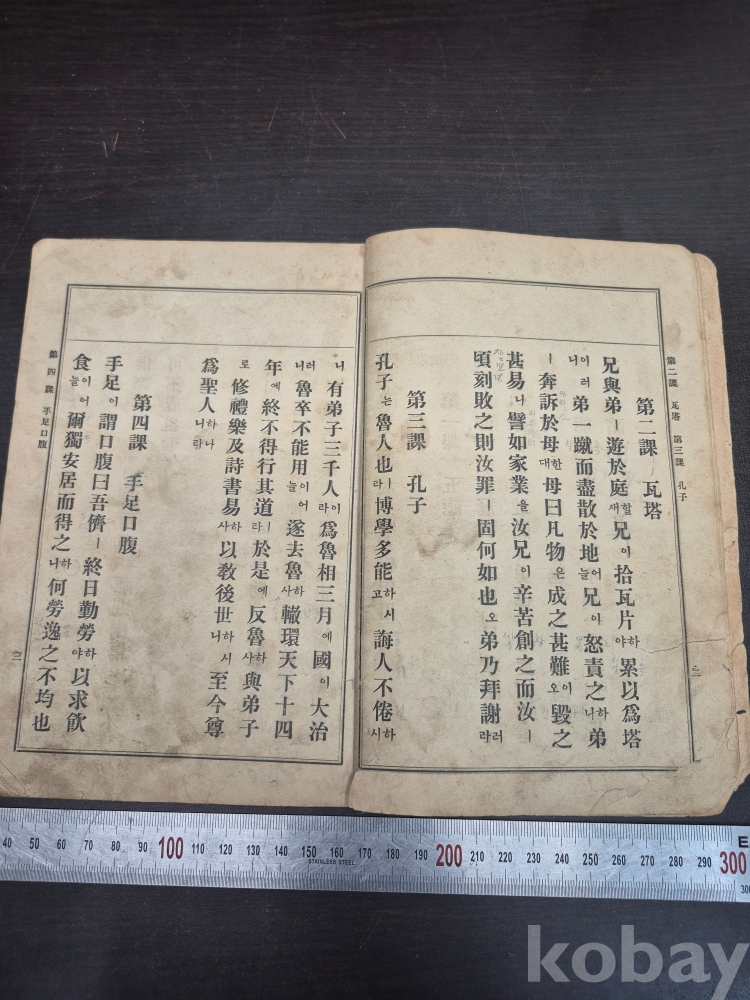 第二課 瓦塔 第三課 孔子
二
第二課 瓦塔
兄與弟ㅣ遊於庭할새兄이拾瓦片하야累以爲塔
이러니弟一蹴而盡散於地어늘兄이怒責之하니弟
ㅣ奔訴於母한대母曰凡物은成之甚難이오毀之
甚易나譬如家業을汝兄이辛苦創之而汝ㅣ
頃刻敗之則汝罪ㅣ固何如也오弟乃拜謝러라
第三課 孔子
孔子는魯人也ㅣ라博學多能하시고誨人不倦하시
니有弟子三千人이라爲魯相三月에國이大治
러니魯卒不能用이어늘遂去魯하사轍環天下十四
年에終不得行其道라於是에反魯하사與弟子
로修禮樂及詩書易하사以敎後世하시니至今尊
爲聖人하나니라
第四課 手足口腹
手足이謂口腹曰吾儕ㅣ終日勤勞하야以求飮
食이어늘爾獨安居而得之하니何勞逸之不均也
第四課 手足口腹
三
40 50 60 70 80 90 100 110 120 130 140 150 160 170 180 190 200 210 220 230 240 250 260 270 280 290 300
STAINLESS STEEL
E
300
kobay